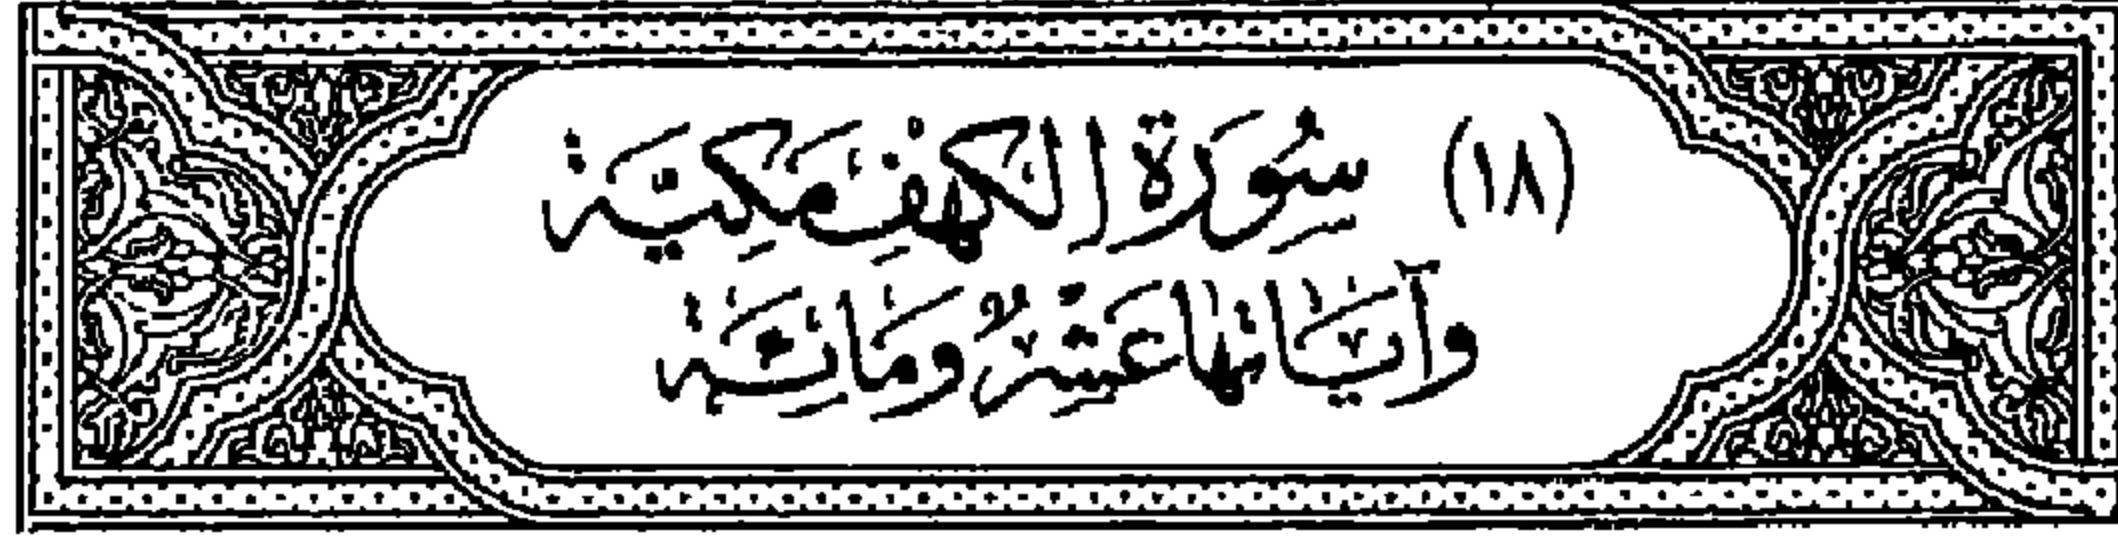 (١٨) سُورَة الكَهْفِ مَكِيَّة
وَآيَاتُهَا عَشْرٌ وَمَائِة